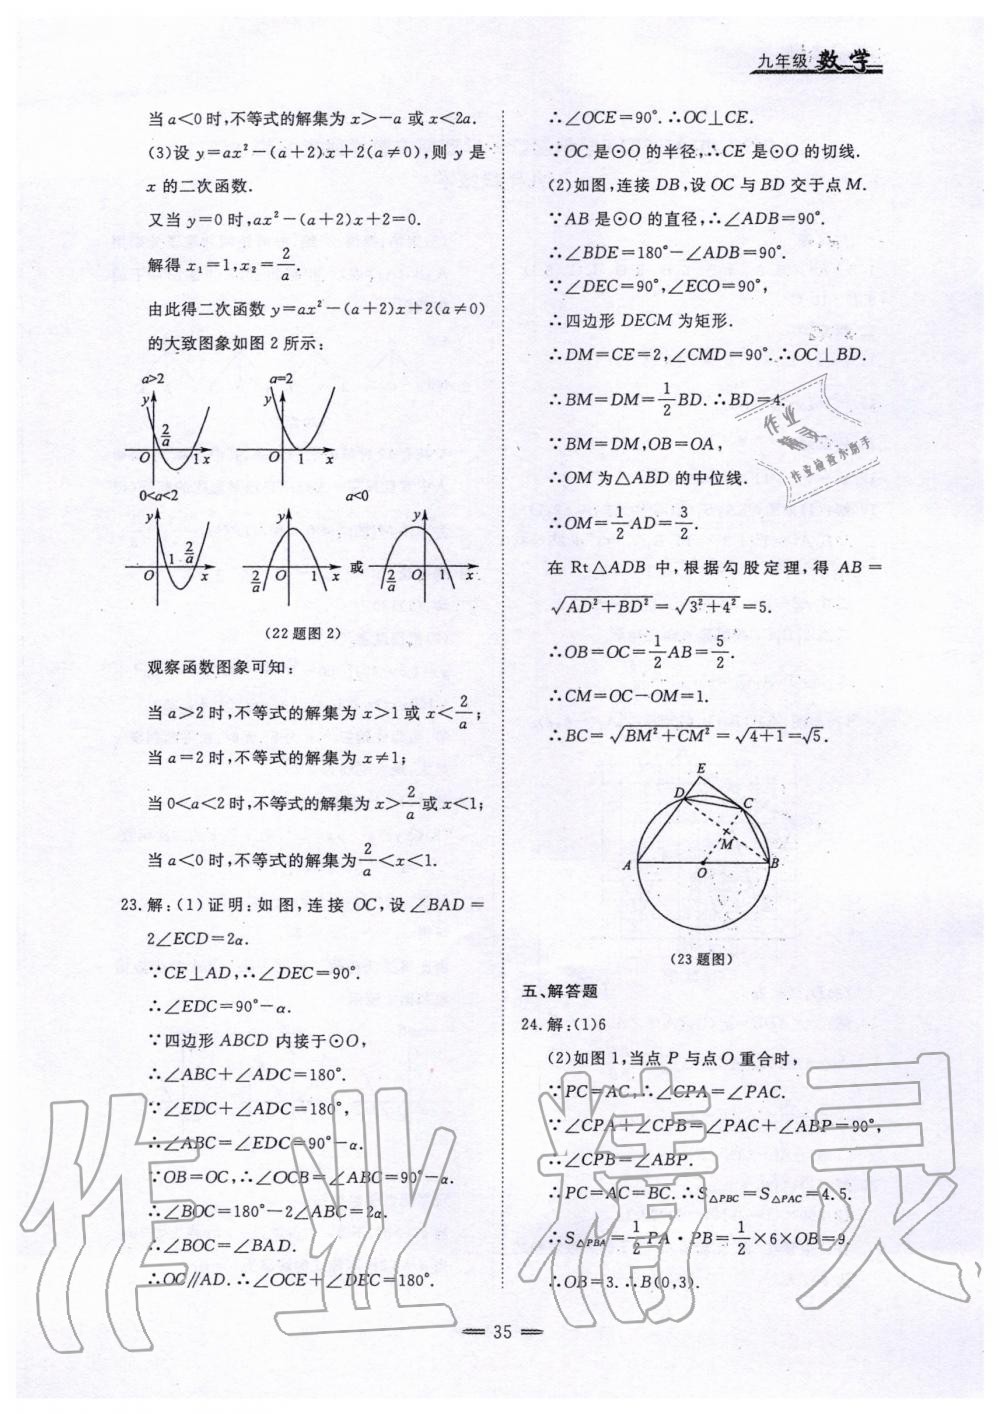 九年级 数学
当a<0时,不等式的解集为x>-a或x<2a.
(3)设y=ax²-(a+2)x+2(a≠0),则y是
x的二次函数.
又当y=0时,ax²-(a+2)x+2=0.
解得x₁=1,x₂=2/a.
由此得二次函数y=ax²-(a+2)x+2(a≠0)
的大致图象如图2所示:
a>2 a=2
y y
2/a
O 1 x O 1 x
0<a<2 a<0
y y y
1 2/a
O x 2/a O 1 x 或 2/a O 1 x
(22题图2)
观察函数图象可知:
当a>2时,不等式的解集为x>1或x<2/a;
当a=2时,不等式的解集为x≠1;
当0<a<2时,不等式的解集为x>2/a或x<1;
当a<0时,不等式的解集为2/a<x<1.
23.解:(1)证明:如图,连接OC,设∠BAD=
2∠ECD=2α.
∵CE⊥AD,∴∠DEC=90°.
∴∠EDC=90°-α.
∵四边形ABCD内接于⊙O,
∴∠ABC+∠ADC=180°.
∵∠EDC+∠ADC=180°,
∴∠ABC=∠EDC=90°-α.
∵OB=OC,∴∠OCB=∠ABC=90°-α.
∴∠BOC=180°-2∠ABC=2α.
∴∠BOC=∠BAD.
∴OC∥AD.∴∠OCE+∠DEC=180°.
∴∠OCE=90°.∴OC⊥CE.
∵OC是⊙O的半径,∴CE是⊙O的切线.
(2)如图,连接DB,设OC与BD交于点M.
∵AB是⊙O的直径,∴∠ADB=90°.
∴∠BDE=180°-∠ADB=90°.
∵∠DEC=90°,∠ECO=90°,
∴四边形DECM为矩形.
∴DM=CE=2,∠CMD=90°.∴OC⊥BD.
∴BM=DM=1/2BD.∴BD=4.
∵BM=DM,OB=OA,
∴OM为△ABD的中位线.
∴OM=1/2AD=3/2.
在Rt△ADB中,根据勾股定理,得AB=
√(AD²+BD²)=√(3²+4²)=5.
∴OB=OC=1/2AB=5/2.
∴CM=OC-OM=1.
∴BC=√(BM²+CM²)=√(4+1)=√5.
E
D C
M
A O B
(23题图)
五、解答题
24.解:(1)6
(2)如图1,当点P与点O重合时,
∵PC=AC,∴∠CPA=∠PAC.
∵∠CPA+∠CPB=∠PAC+∠ABP=90°,
∴∠CPB=∠ABP.
∴PC=AC=BC.∴S△PBC=S△PAC=4.5.
∴S△PBA=1/2PA·PB=1/2×6×OB=9.
∴OB=3.∴B(0,3).
35
作业精灵
作业
精灵
作业检查小助手